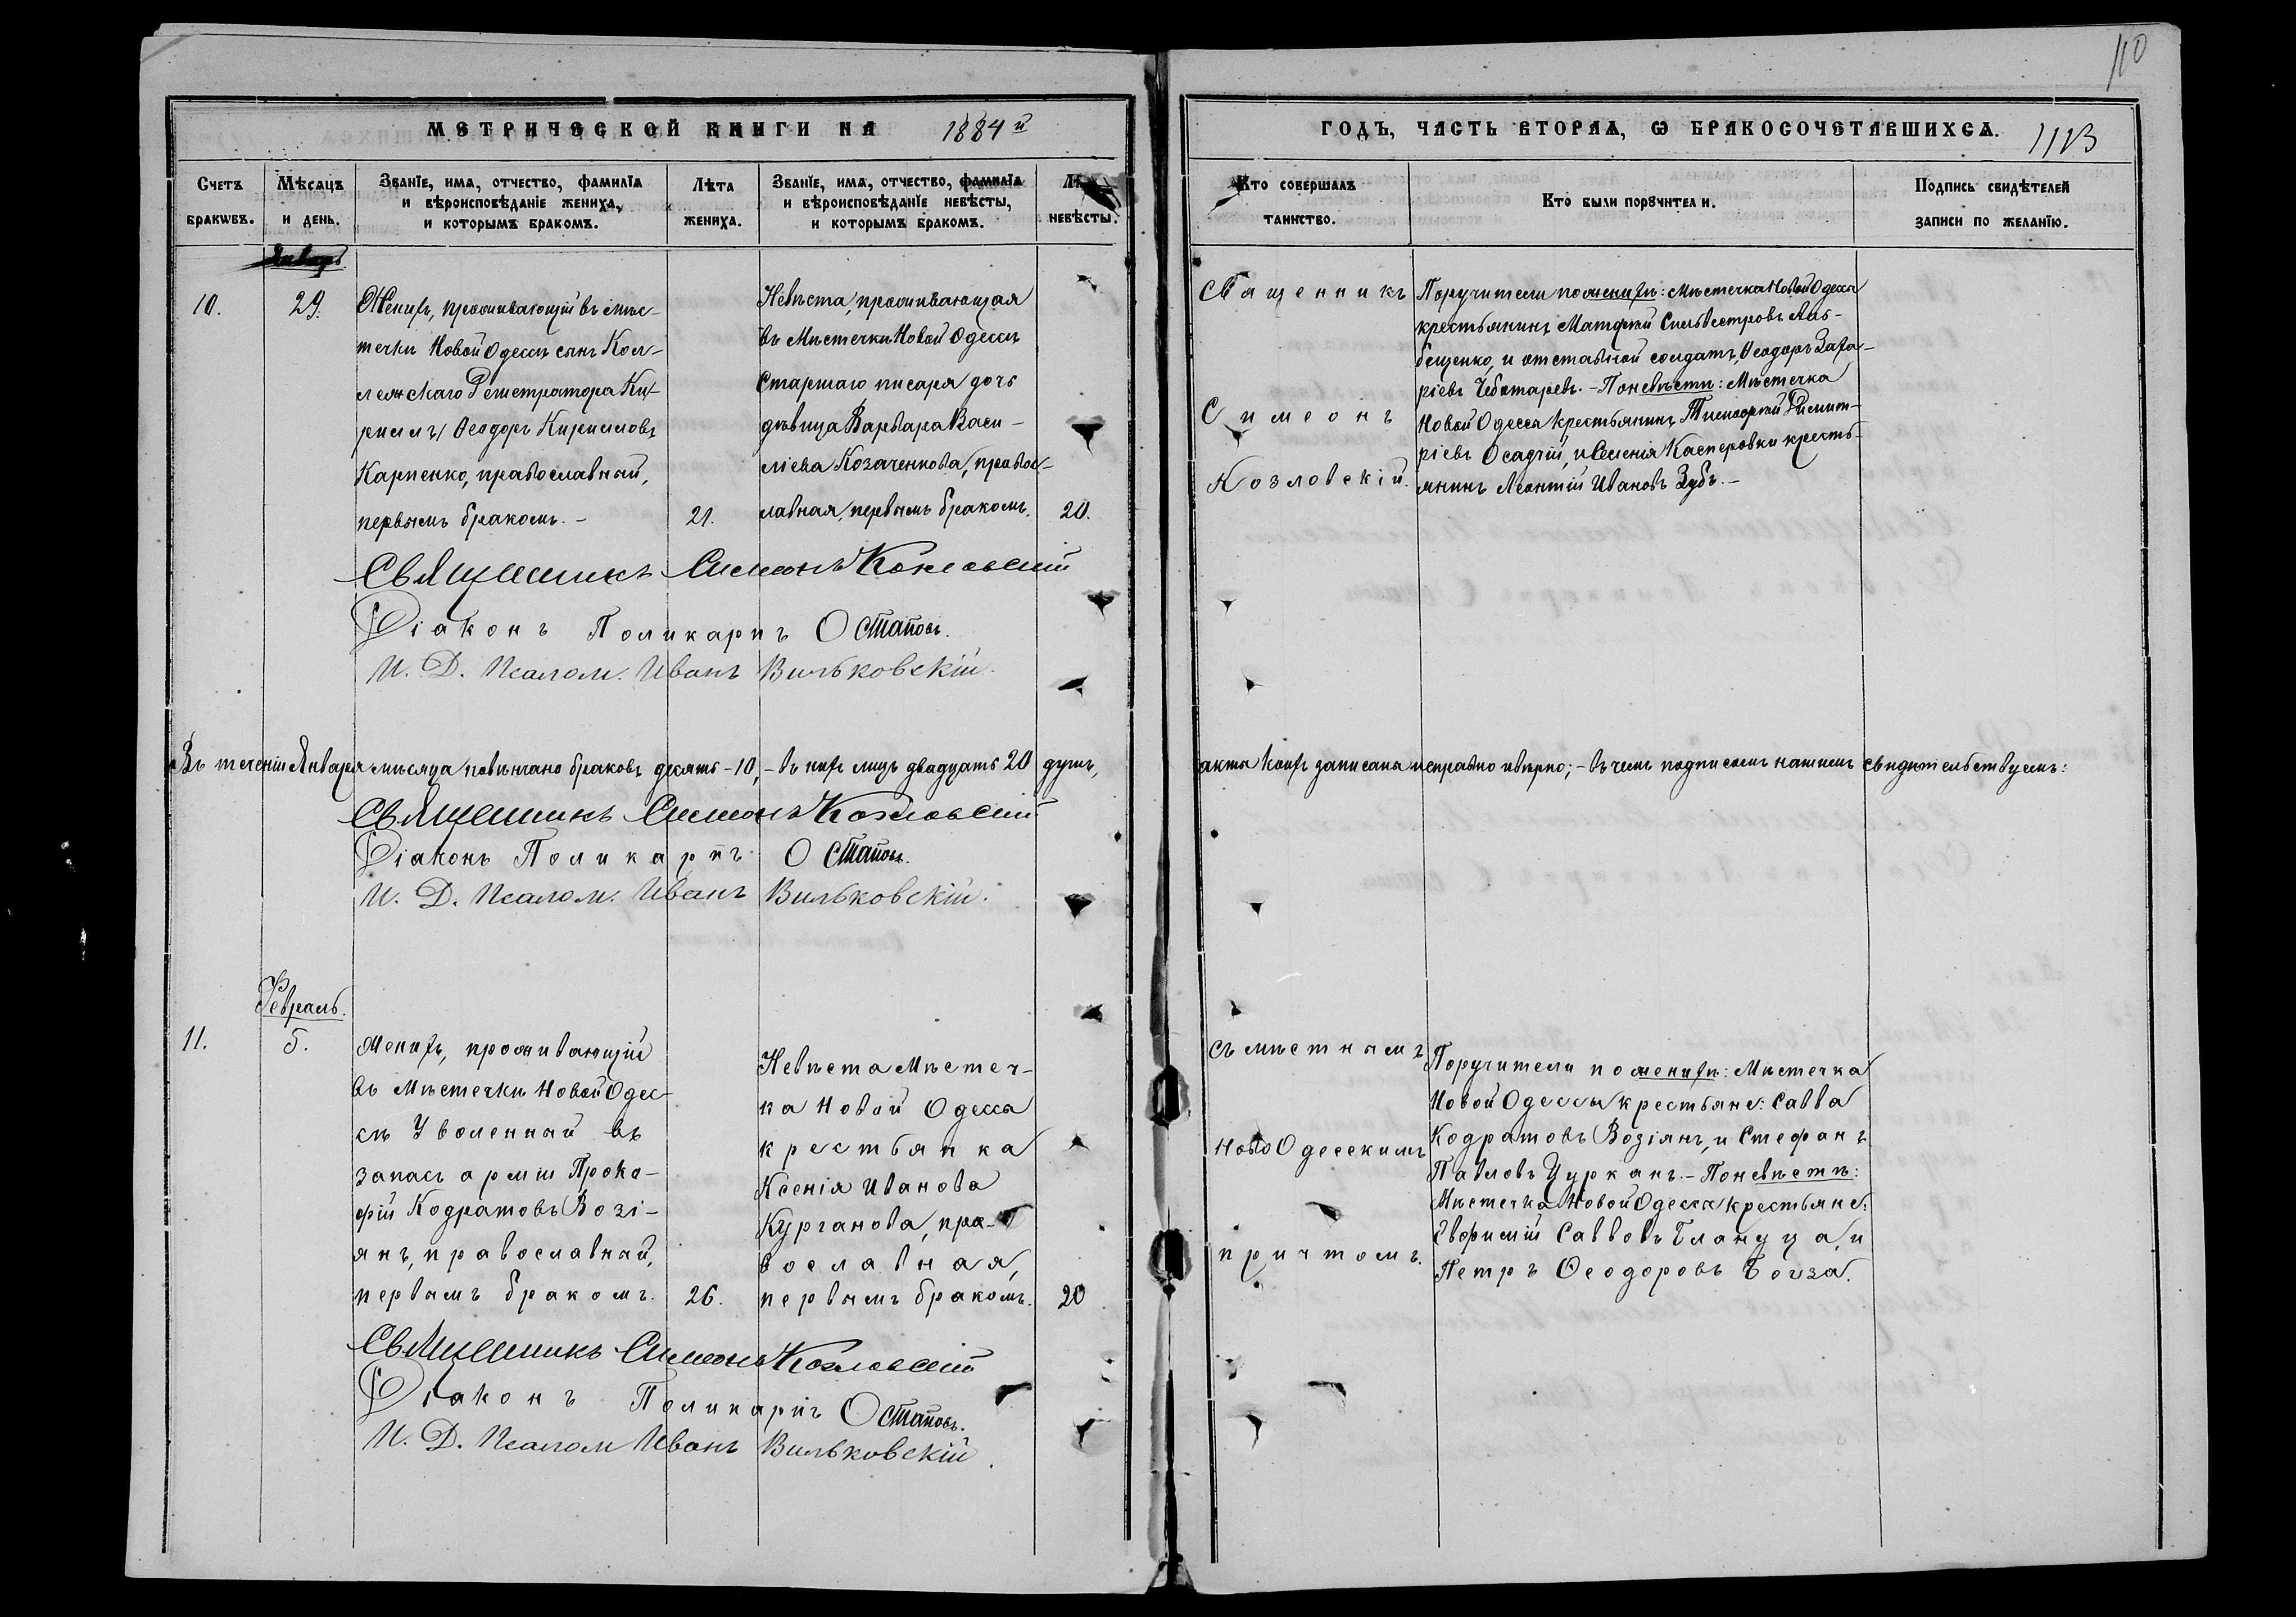 110
МЕТРИЧЕСКОЙ КНИГИ НА 1884й
ГОДЪ, ЧАСТЬ ВТОРАЯ, Ѡ БРАКОСОЧЕТАВШИХСЯ.
Счетъ браковъ.
Мѣсяцъ и день.
Званїе, имя, отчество, фамилїя
и вѣроисповѣданїе жениха,
и которымъ бракомъ.
Лѣта
жениха.
Званїе, имя, отчество, фамилїя
и вѣроисповѣданїе невѣсты,
и которымъ бракомъ.
невѣсты.
Кто совершалъ
таинство.
Кто были порꙋчители.
Подпись свидѣтелей
записи по желанїю.
Январь
10.
29.
Женихъ, проживающій въ мѣс-
течкѣ Новой Одессѣ сынъ Кол-
лежскаго Регистратора Ки-
рилла Ѳеодоръ Кирилловъ
Карпенко, православный,
первымъ бракомъ. -
21.
Невѣста, проживающая
въ Мѣстечкѣ Новой Одессѣ
Старшаго писаря дочь
дѣвица Варвара Васи-
ліева Козаченкова, правос-
лавная, первымъ бракомъ.
20.
Священникъ
Симеонъ
Козловскій.
Поручители по женихѣ: Мѣстечка Новой Одессы
крестьянинъ Матфій Сильвестровъ
бещенко, и отставной солдатъ, Ѳеодоръ Заха-
ріевъ Чеботаревъ. - По невѣстѣ: Мѣстечка
Новой Одесса крестьянинъ Тимофей Димит-
ріевъ Осадчій, и Селенія Касперовки кресть-
янинъ Леонтій Ивановъ Зубъ. -
Священникъ Симеонъ Козловскій
Діаконъ Поликарпъ Остаповъ.
И. Д. Псалом. Иванъ Вильковскій.
Въ теченіи Января мѣсяца повѣнчано браковъ десять - 10, - въ нихъ лицъ двадцать 20 душъ, акты коихъ записаны исправно и вѣрно; - въ чемъ подписомъ нашимъ свидѣтельствуемъ:
Священникъ Симеонъ Козловскій
Діаконъ Поликарпъ Остаповъ.
И. Д. Псалом. Иванъ Вильковскій.
Февраль.
11.
5.
Женихъ, проживающій
въ Мѣстечкѣ Новой Одес-
сѣ Уволенный въ
запасъ арміи Проко-
фій Кодратовъ Возі-
янъ, православный,
первымъ бракомъ.
26.
Невѣста Мѣстеч-
ка Новой Одесса
крестьянка
Ксенія Иванова
Курганова, пра-
вославная,
первымъ бракомъ.
20
Съ мѣстнымъ
Ново Одесскимъ
причтомъ.
Поручители по женихѣ: Мѣстечка
Новой Одессы крестьяне: Савва
Кодратовъ Возіянъ, и Стефанъ
Павловъ Цурканъ. - По невѣстѣ:
Мѣстечка Новой Одесса крестьяне:
Евфимій Саввовъ Бландуца, и
Петръ Ѳеодоровъ
Священникъ Симеонъ Козловскій
Діаконъ Поликарпъ Остаповъ.
И. Д. Псалом Иванъ Вильковскій.